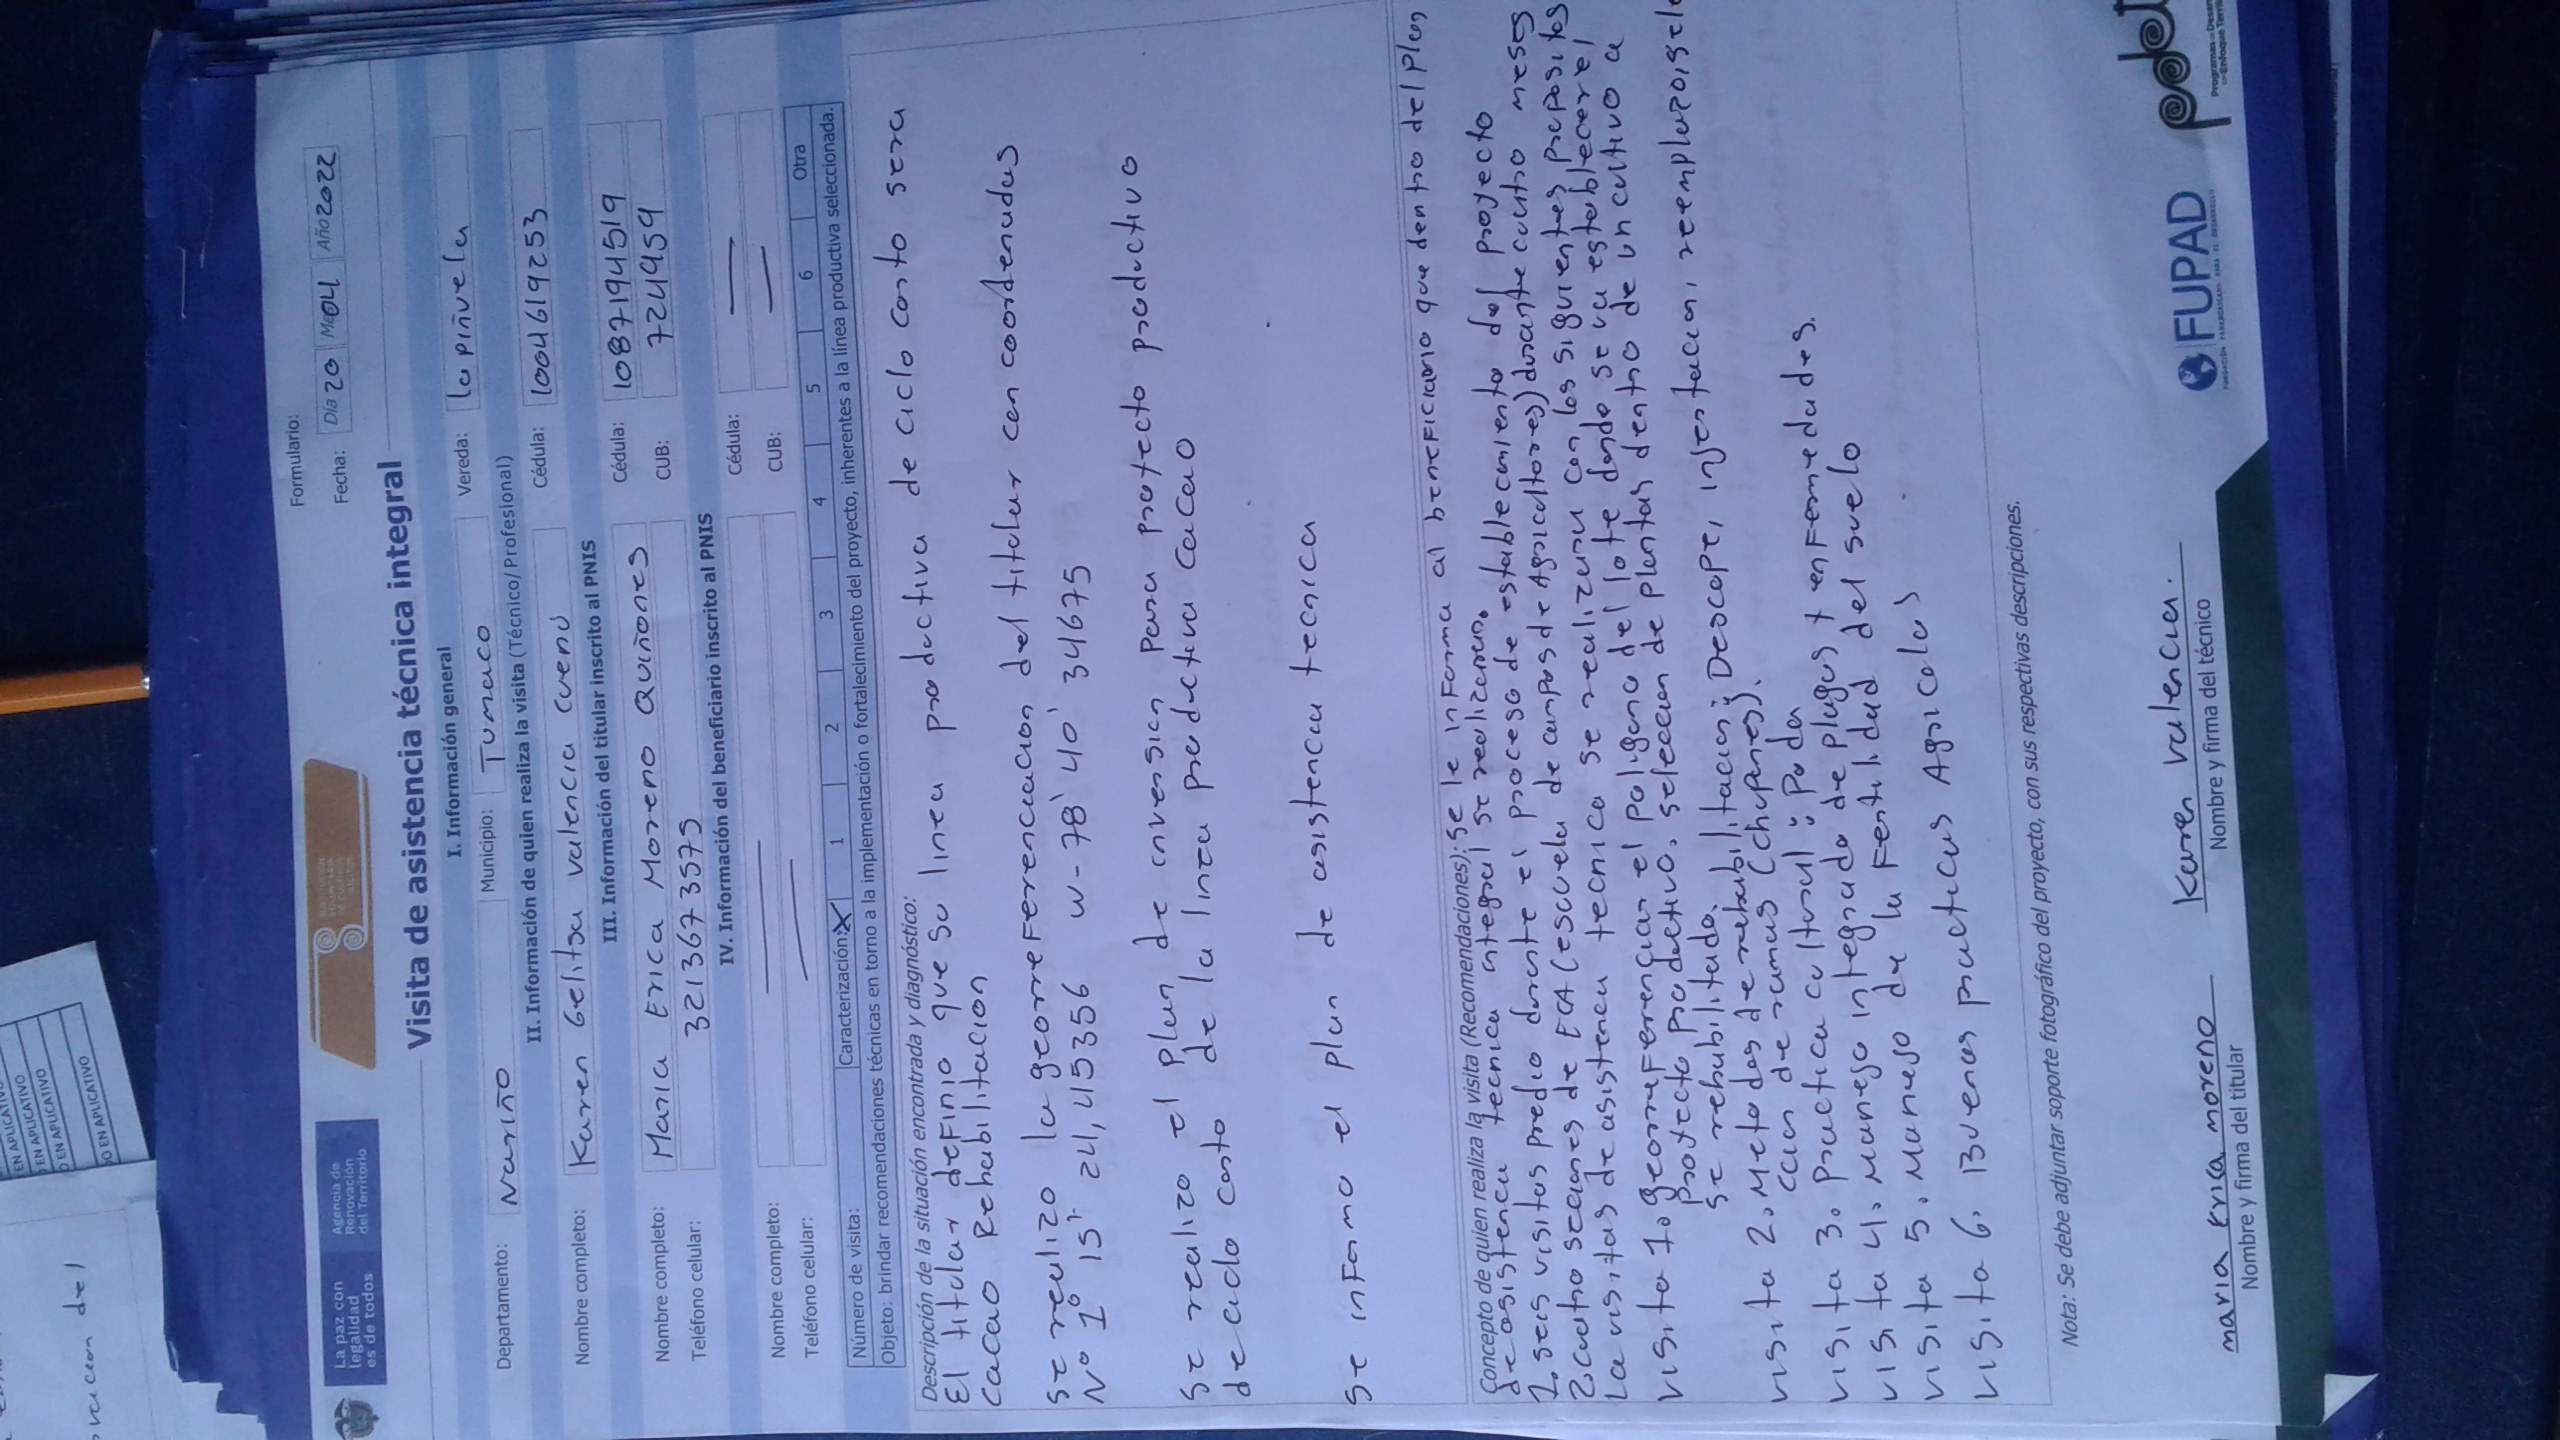 La paz con
legalidad
es de todos
Agencia de
Renovación
del Territorio
Formulario:
Fecha: Día 20 Mes 04 Año 2022
Visita de asistencia técnica integral
I. Información general
Departamento: Nariño Municipio: Tumaco Vereda: la piñuela
II. Información de quien realiza la visita (Técnico/Profesional)
Nombre completo: Karen Gelitsa valencia cuenú Cédula: 1004619253
III. Información del titular inscrito al PNIS
Nombre completo: Maria Erica Moreno Quiñones Cédula: 1087194519
Teléfono celular: 3213673575 CUB: 7249459
IV. Información del beneficiario inscrito al PNIS
Nombre completo: — Cédula: —
Teléfono celular: — CUB: —
Número de visita: Caracterización X 1 2 3 4 5 6 Otra
Objeto: brindar recomendaciones técnicas en torno a la implementación o fortalecimiento del proyecto, inherentes a la línea productiva seleccionada.
Descripción de la situación encontrada y diagnóstico:
El titular definio que su linea productiva de ciclo corto sera
cacao Rehabilitacion
se realizo la georreferenciacion del titular con coordenadas
N° 1° 15' 24,415356 w-78' 40' 34675
se realizo el plan de inversion para protecto productivo
de ciclo corto de la linea productiva cacao
se informo el plan de asistencia tecnica
Concepto de quien realiza la visita (Recomendaciones): se le informa al beneficiario que dentro del plan
de asistencia tecnica integral se realizaran.
1. seis visitas predio durante el proceso de establecimiento del proyecto
2. cuatro secciones de ECA (escuela de campos de Agricultores) durante cuatro meses
La visitas de asistencia tecnica se realizaran con los siguientes propositos
visita 1. georreferenciar el poligono del lote donde se va establecer el
proyecto productivo. seleccion de plantas dentro de un cultivo a
se rehabilitado.
visita 2. Metodos de rehabilitacion: Descope, injertacion, reemplazo, selec
cion de ramas (chupones).
visita 3. practica cultural: Poda
visita 4. Manejo integrado de plagas y enfermedades.
visita 5. Manejo de la fertilidad del suelo
visita 6. Buenas practicas Agricolas
Nota: Se debe adjuntar soporte fotográfico del proyecto, con sus respectivas descripciones.
maria erica moreno
Nombre y firma del titular
Karen valencia.
Nombre y firma del técnico
FUPAD
FUNDACIÓN PANAMERICANA PARA EL DESARROLLO
pdet
EN APLICATIVO
EN APLICATIVO
O EN APLICATIVO